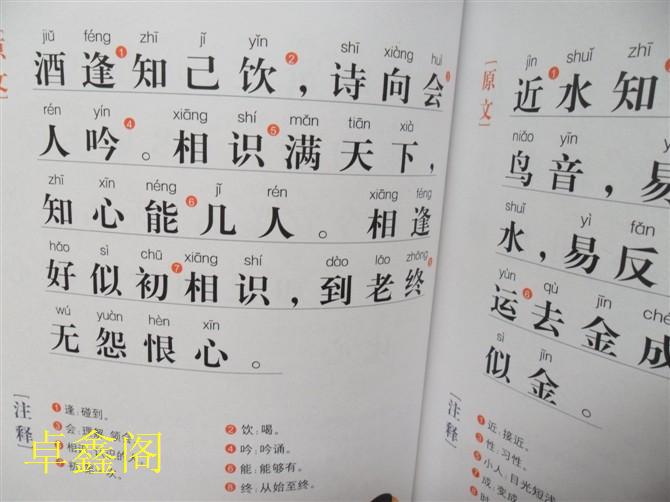 原文
jiǔ féng zhī jǐ yǐn shī xiàng huì
酒逢❶知己饮❷，诗向会
rén yín xiāng shí mǎn tiān xià
人吟❹。相识❺满天下，
zhī xīn néng jǐ rén xiāng féng
知心能❻几人。相逢
hǎo sì chū xiāng shí dào lǎo zhōng
好似初❼相识，到老终
wú yuàn hèn xīn
无怨恨心。
注释
❶逢：碰到。
❷饮：喝。
❸会：理解，领会。
❹吟：吟诵。
❺相识：认识的人。
❻能：能够有。
❽终：从始至终。
卓鑫阁
原文
jìn shuǐ zhī
近❶水知
niǎo yīn
鸟音，易
shuǐ yì fǎn
水，易反
yùn qù jīn ché
运❻去金成
sì jīn
似金。
注释
❶近：接近。
❸性：习性。
❺小人：目光短浅
❼成：变成